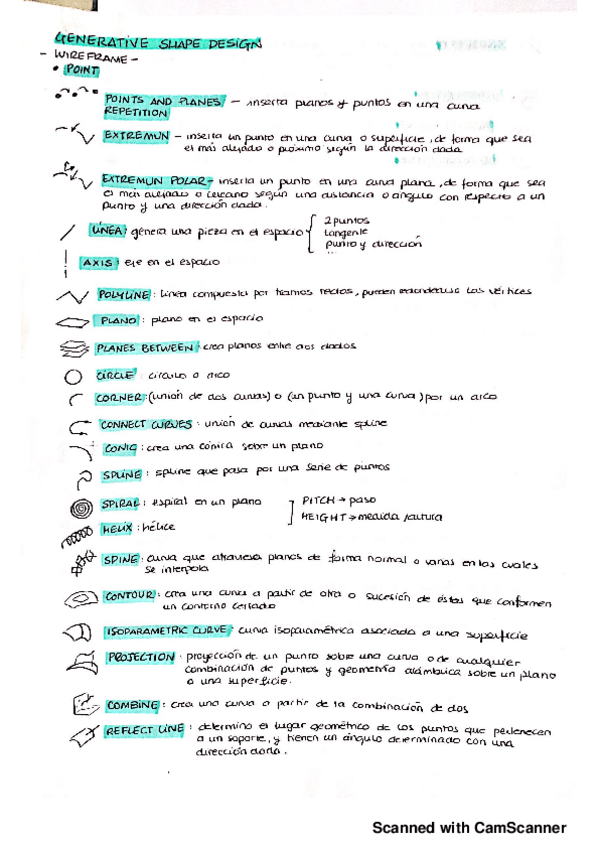 GENERATIVE SHAPE DESIGN
- WIREFRAME -
• POINT
POINTS AND PLANES - inserta planos y puntos en una curva
REPETITION
EXTREMUN - inserta un punto en una curva o superficie, de forma que sea
el más alejado o próximo según la dirección dada
EXTREMUN POLAR - inserta un punto en una curva plana, de forma que sea
el más alejado o cercano según una distancia o ángulo con respecto a un
punto y una dirección dada.
LÍNEA: genera una pieza en el espacio { 2 puntos
tangente
punto y dirección
...
AXIS: eje en el espacio
POLYLINE: línea compuesta por tramos rectos, pueden redondearse los vértices
PLANO: plano en el espacio
PLANES BETWEEN: crea planos entre dos dados
CIRCLE: círculo o arco
CORNER: (unión de dos curvas) o (un punto y una curva) por un arco
CONNECT CURVES: unión de curvas mediante spline
CONIC: crea una cónica sobre un plano
SPLINE: spline que pasa por una serie de puntos
SPIRAL: espiral en un plano ] PITCH → paso
HEIGHT → medida /altura
HELIX: hélice
SPINE: curva que atraviesa planos de forma normal o varias en las cuales
se interpola
CONTOUR: crea una curva a partir de otra o sucesión de éstas que conformen
un contorno cerrado
ISOPARAMETRIC CURVE: curva isoparamétrica asociada a una superficie
PROJECTION: proyección de un punto sobre una curva o de cualquier
combinación de puntos y geometría alámbrica sobre un plano
o una superficie.
COMBINE: crea una curva a partir de la combinación de dos
REFLECT LINE: determina el lugar geométrico de los puntos que pertenecen
a un soporte, y tienen un ángulo determinado con una
dirección dada.
Scanned with CamScanner